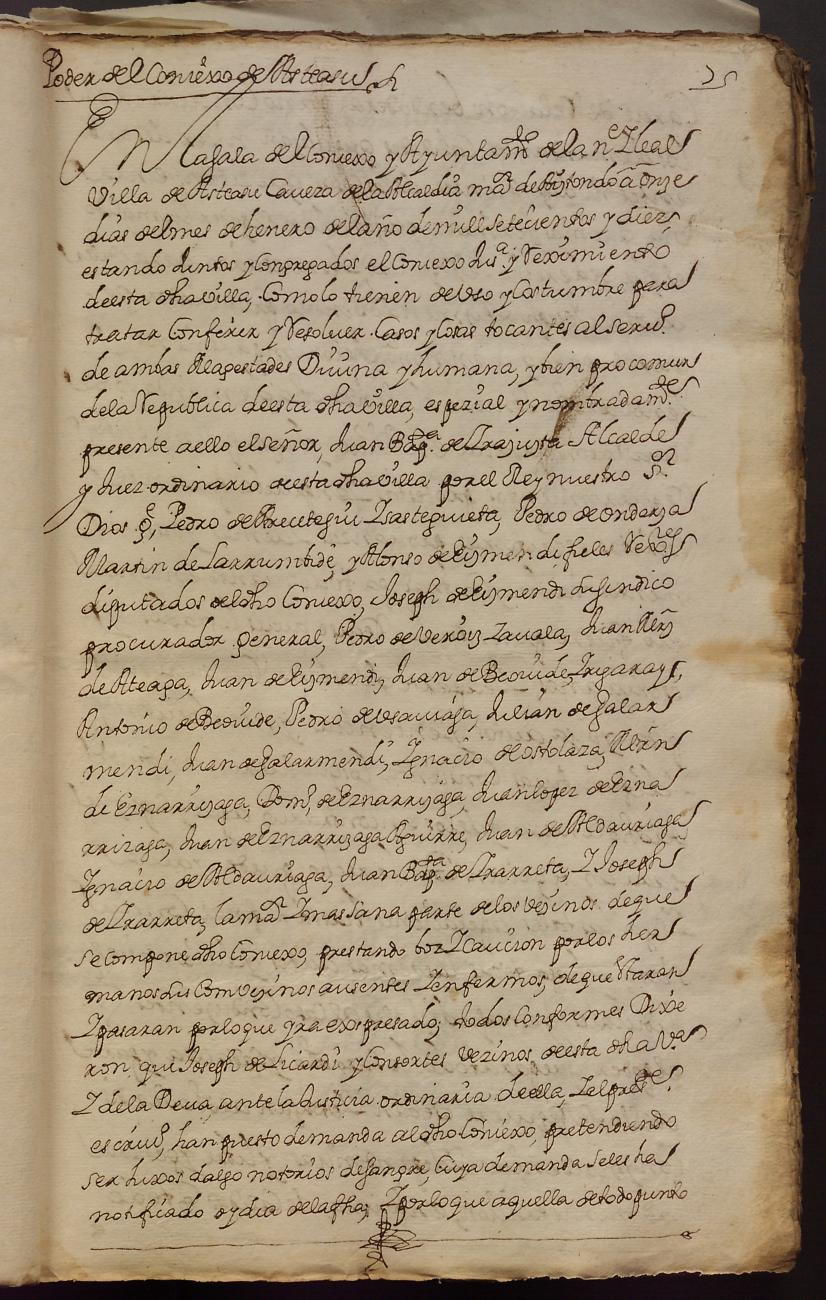 Poder del Conçexo de Asteasu
25
En la sala del Conçexo y Ayuntamto de la ne Y leal
Villa de Asteasu Caveza de la Alcaldia mar de Aiztondo a onze
dias del mes de henero del año de mill setecientos y diez,
estando Juntos y Congregados el Conzexo Jusa y Reximiento
de esta dha villa, Como lo tienen de Uso y Costumbre para
tratar Conferir y Resolver Casos y Cosas tocantes al serwo
de ambas Magestades Divina y humana, y bien pro comun
de la Republica de esta dha villa, espezial y nombradamte
presente a ello el señor Juan Bapta de Yrajusta Alcalde
y Juez ordinario de esta dha villa por el Rey nuestro sor
Dios ge, Pedro de Arecetegui Ysasteguieta, Pedro de Ondarza
Martin de Larrumbide, y Alonso de Eizmendi fieles Rexres
diputados del dho Conçexo, Joseph de Eizmendi su sindico
procurador general, Pedro de Veroiz Zavala, Juan Mrn
de Ateaga, Juan de Eizmendi, Juan de Beovide Yrigaray,
Antonio de Beovide, Pedro de Usaviaga, Julian de Galar
mendi, Juan de Galarmendi, Ygnacio de Ostolaza, Mrn
de Eznarrizaga, Domo de Eznarrizaga, Juan lopez de Ezna
rrizaga, Juan de Eznarrizaga Aguirre, Juan de Aldauriaga
Ygnacio de Aldauriaga, Juan Bapta de Yrarreta, Y Joseph
de Yrarreta, la mar Y mas sana parte de los vezinos de que
se compone dho Conzexo, prestando boz Y caucion por los her
manos sus Convezinos ausentes Y enfermos, de que estaran
Y pasaran por lo que yra expresado; todos Conformes Dixe
ron que Joseph de Licardi y Consortes Vezinos de esta dha Va
Y de la Deva, ante la Justicia ordinaria de ella, Y el preste
escrivo, han puesto demanda al dho Conzexo, pretendiendo
ser hixos dalgo notorios de sangre, Cuya demanda se les ha
notificado oy dia de la fha; Y por lo que aquella de todo punto